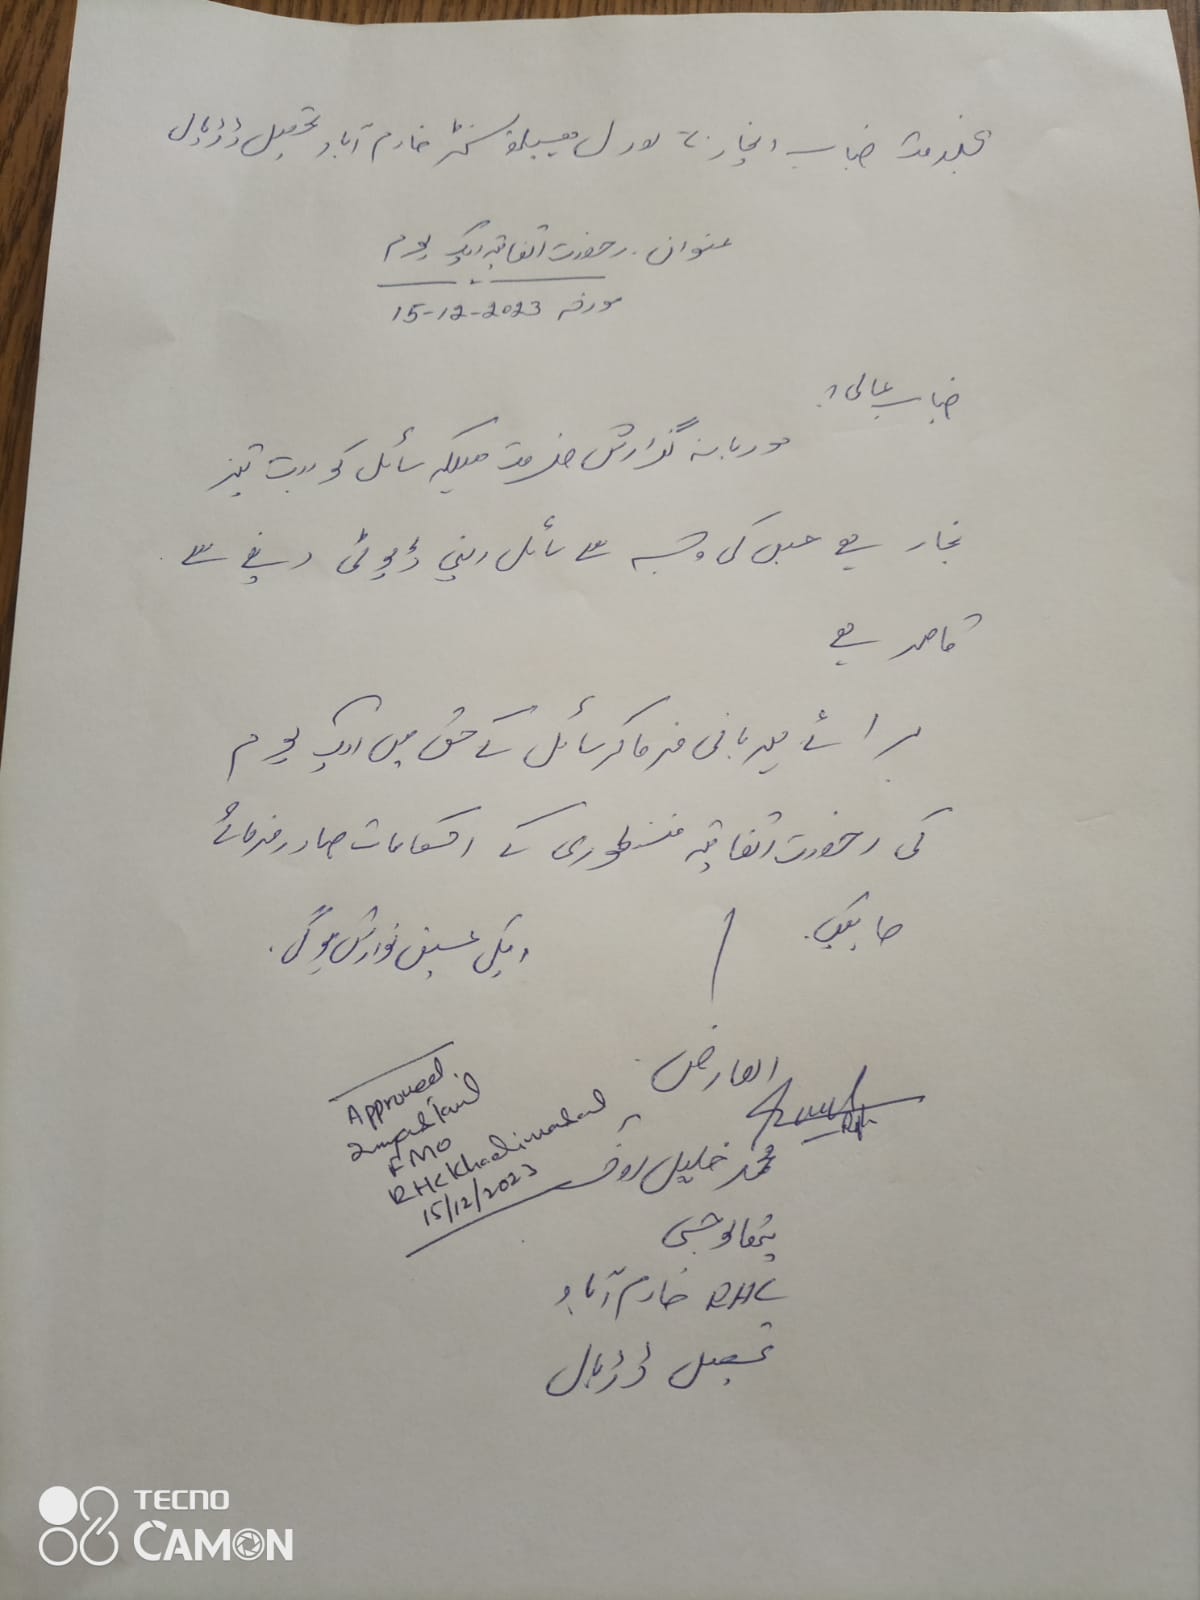 بخدمت جناب انچارج رورل ہیلتھ سنٹر خادم آباد تحصیل ڈڈیال
عنوان۔ رخصت اتفاقیہ ایک یوم
مورخہ 15-12-2023
جناب عالی!
مودبانہ گذارش خدمت ہیکہ سائل کو بہت تیز
بخار ہے جس کی وجہ سے سائل اپنی ڈیوٹی دینے سے
قاصر ہے
برائے مہربانی فرما کر سائل کے حق میں ایک یوم
کی رخصت اتفاقیہ منظوری کے احکامات صادر فرمائے
جائیں۔
عین نوازش ہوگی۔
العارض
محمد خلیل
Approved
FMO
RHC Khadimabad
15/12/2023
پتھالوجسٹ
RHC خادم آباد
تحصیل ڈڈیال
TECNO
CAMON